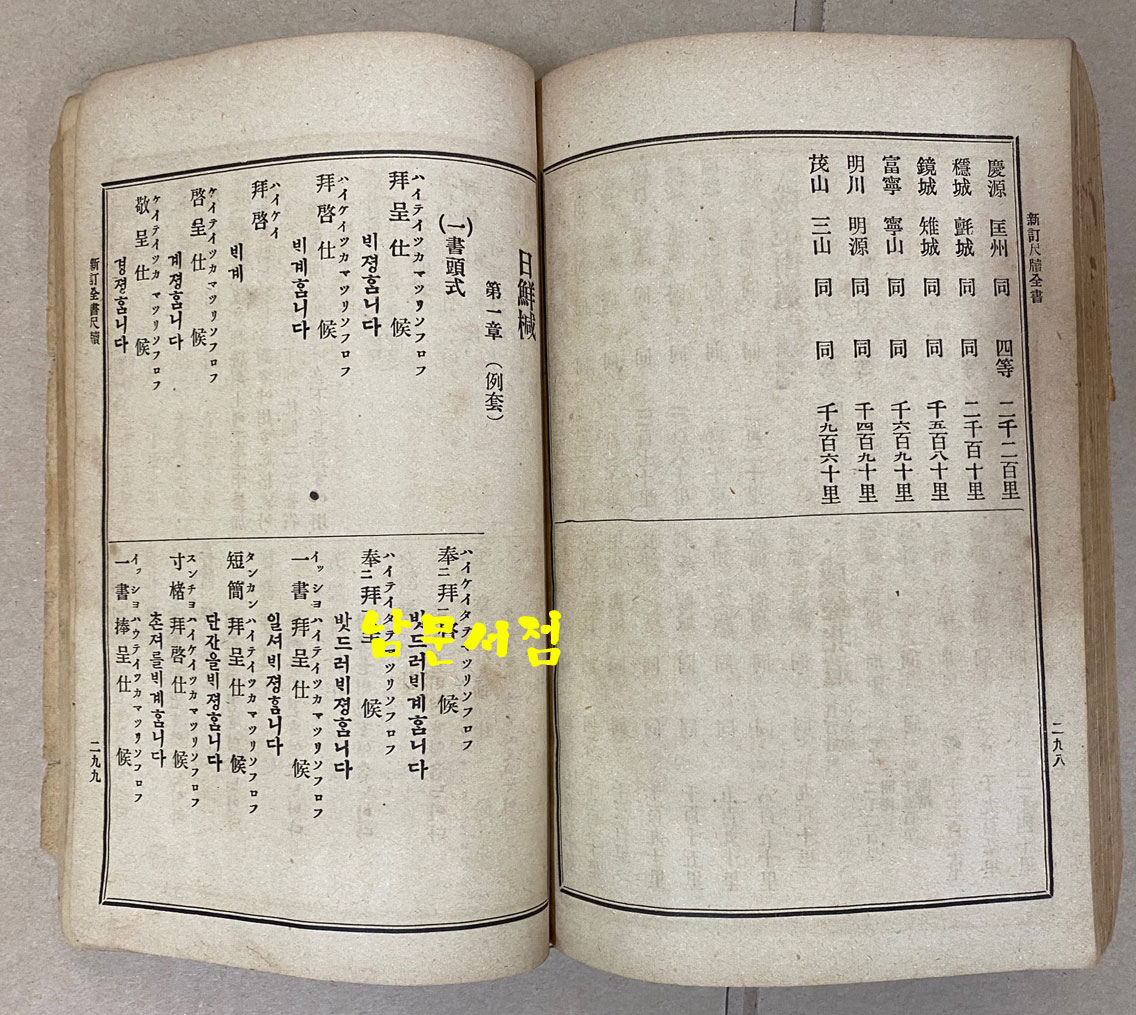 新訂尺牘全書
慶源 匡州 同 四等 二千二百里
穩城 氈城 同 同 二千百十里
鏡城 雉城 同 同 千五百八十里
富寧 寧山 同 同 千六百九十里
明川 明源 同 同 千四百九十里
茂山 三山 同 同 千九百六十里
二九八
日鮮椷
第一章 (例套)
(一)書頭式
ハイテイツカマツリソフロフ
拜呈仕候
비졍홈니다
ハイケイツカマツリソフロフ
拜啓仕候
비계홈니다
ハイケイ
拜啓
비계
ケイテイツカマツリソフロフ
啓呈仕候
계졍홈니다
ケイテイツカマツリソフロフ
敬呈仕候
경졍홈니다
ハイケイタテマツリソフロフ
奉ニ拜啓候
밧드러비계홈니다
ハイテイタテマツリソフロフ
奉ニ拜呈候
밧드러비졍홈니다
イッショハイテイツカマツリソフロフ
一書拜呈仕候
일셔비졍홈니다
タンカンハイテイツカマツリソフロフ
短簡拜呈仕候
단잔을비졍홈니다
スンチョハイケイツカマツリソフロフ
寸楮拜啓仕候
촌져를비계홈니다
イッショハウテイツカマツリソフロフ
一書捧呈仕候
新訂全書尺牘
二九九
남문서점